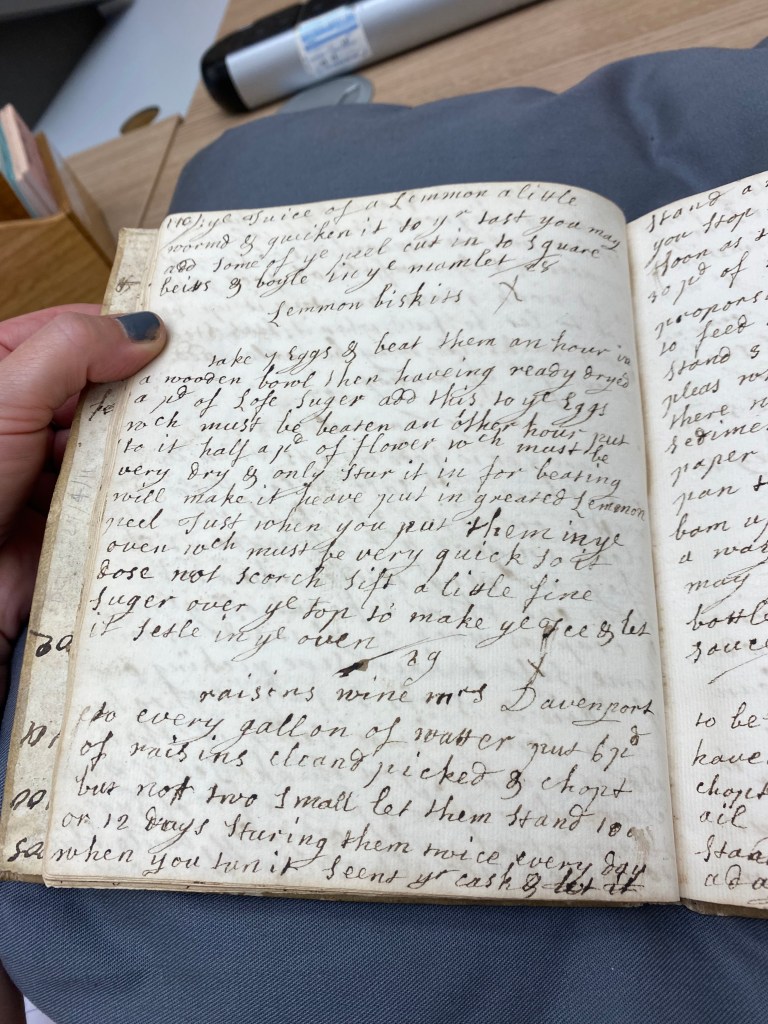 (10) ye Juice of a Lemmon a little
wormd & quiken it to yr tast you may
add some of ye peel cut in to square
beits & boyle in ye mamlet 28
Lemmon biskits X
take 7 Eggs & beat them an hour in
a wooden bowl then haveing ready dryed
a pd of Lofe suger add this to ye Eggs
wch must be beaten an other hour put
to it half a pd of flower wch must be
very dry & only stur it in for beating
will make it heave put in greated Lemmon
peel Just when you put them in ye
oven wch must be very quick so it
dose not scorch sift a little fine
suger over ye top to make ye Jce & let
it setle in ye oven 29
X
raisens wine mrs Davenport
to every gallon of watter put 6 pd
of raisins cleand picked & chopt
but not two small let them stand 10
or 12 days sturing them twice every day
when you tun it seent yr cask & let it
stand a
you stop
soon as
30 pd of
proporsi
to feed
stand 3
pleas
there
sedime
paper
pan
bam
a
may
bottle
sauce
to be
have
chopt
ail
stand
ad a